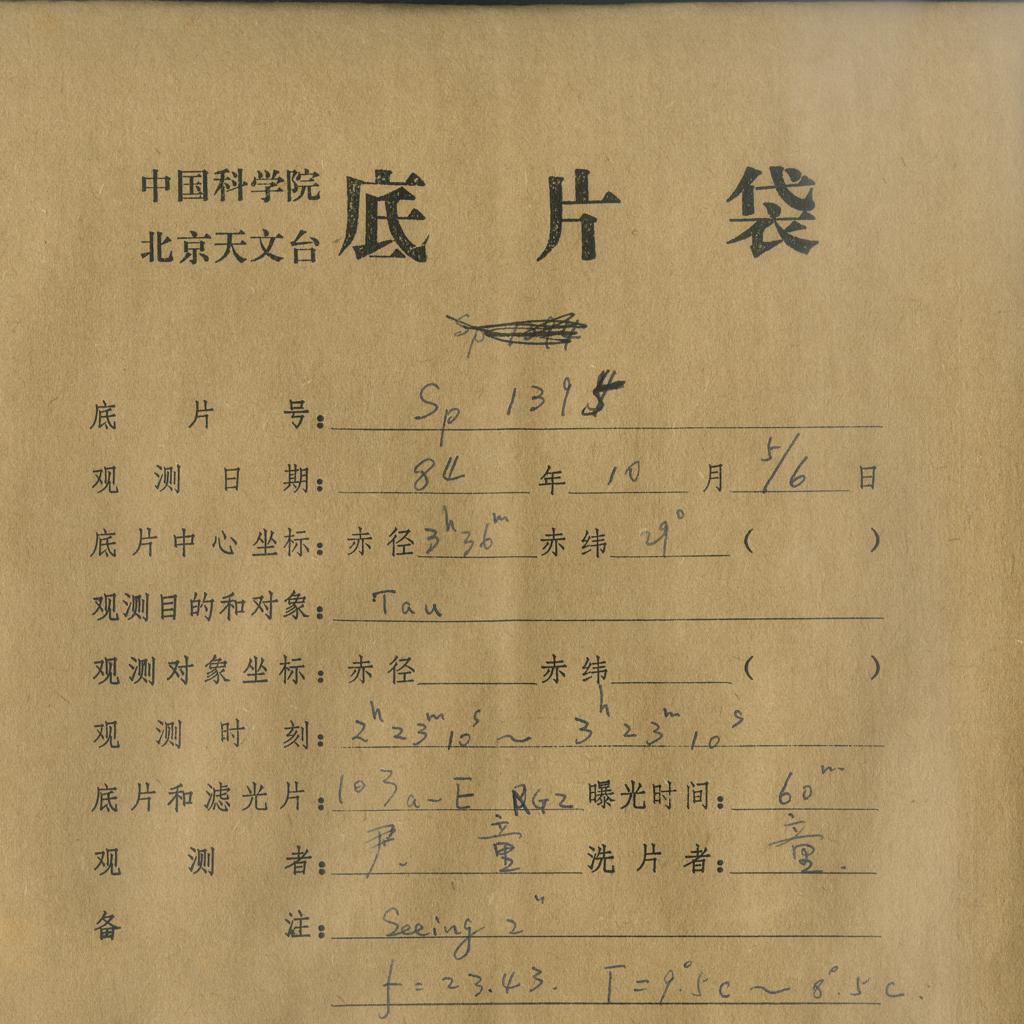 中国科学院
北京天文台
底片袋
底片号: Sp 1394
观测日期: 84 年 10 月 5/6 日
底片中心坐标: 赤径 3h 36m 赤纬 29° ( )
观测目的和对象: Tau
观测对象坐标: 赤径 赤纬 ( )
观测时刻: 2h 23m 10s ~ 3h 23m 10s
底片和滤光片: 103a-E RG2 曝光时间: 60m
观测者: 尹. 童 洗片者: 童.
备注: Seeing 2"
f = 23.43. T = 9°.5c ~ 8°.5c.